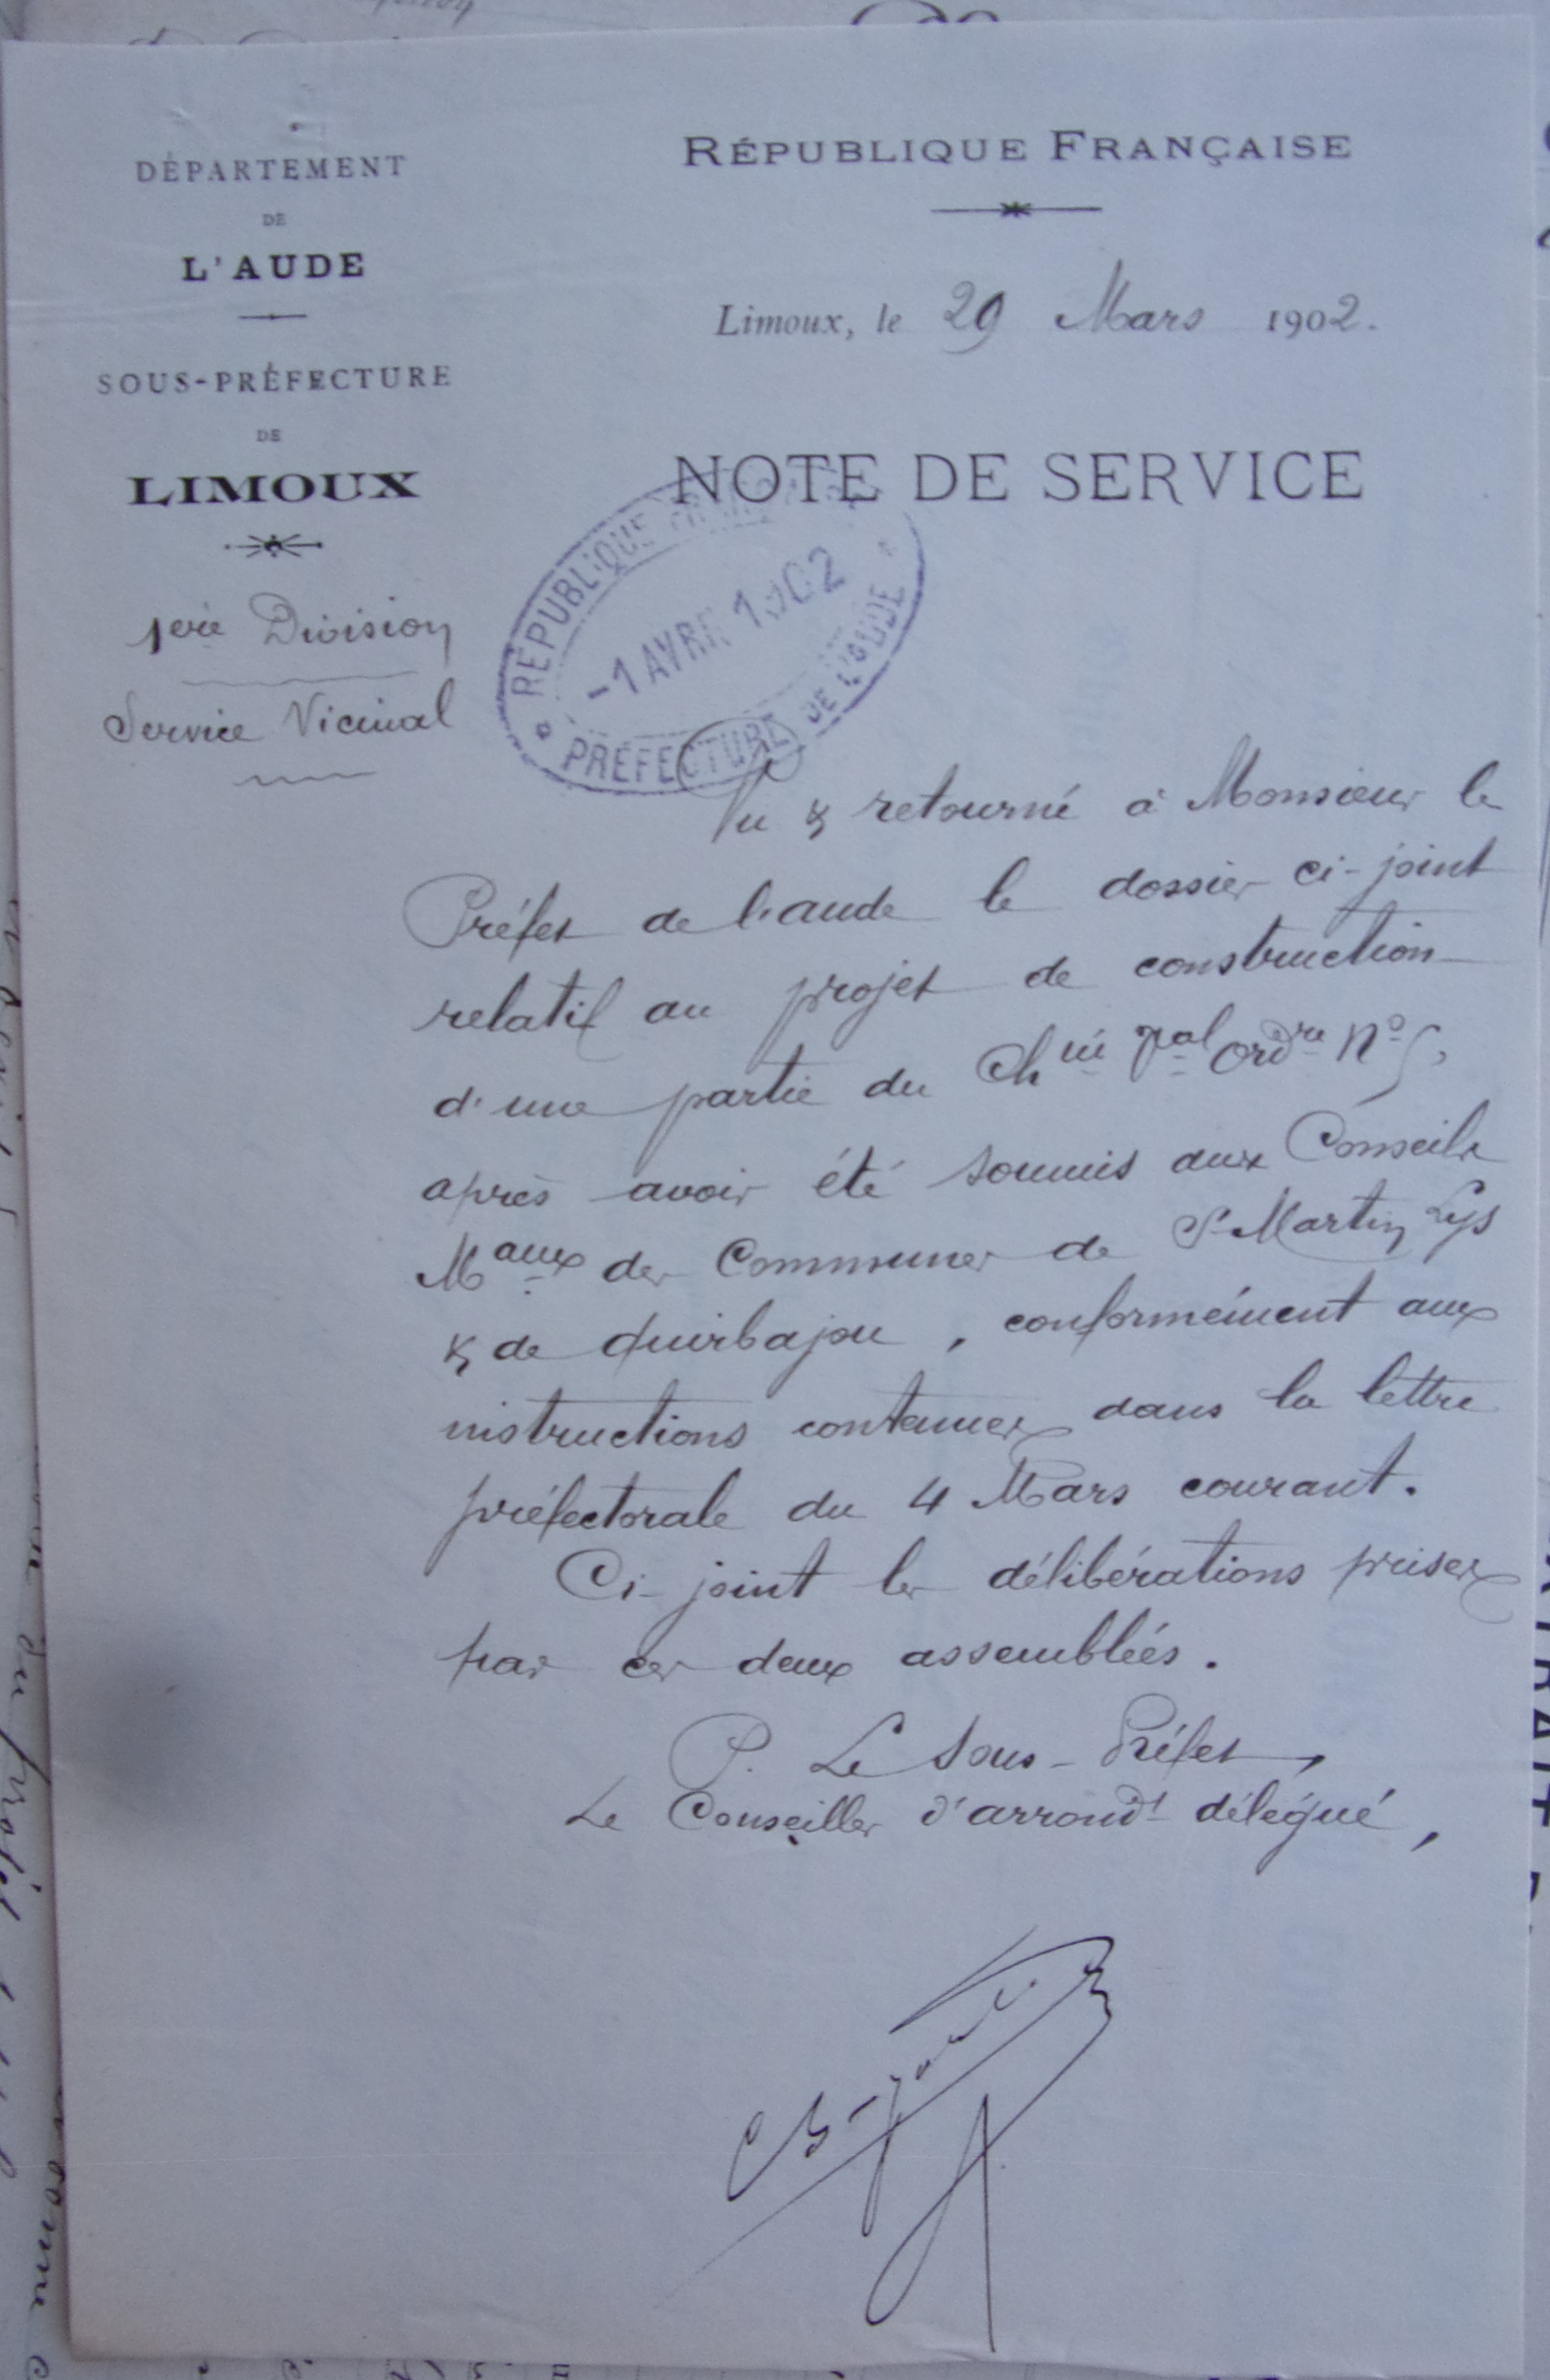 DÉPARTEMENT
DE
L'AUDE
SOUS-PRÉFECTURE
DE
LIMOUX
1ère Division
Service Vicinal
RÉPUBLIQUE FRANÇAISE
Limoux, le 29 Mars 1902.
NOTE DE SERVICE
RÉPUBLIQUE FRANÇAISE
-1 AVRIL 1902
PRÉFECTURE DE L'AUDE
Vu & retourné à Monsieur le
Préfet de l'aude le dossier ci-joint
relatif au projet de construction
d'une partie du Ch in val ordre N° 5,
après avoir été soumis aux Conseils
Maux des Communes de St Martin Lys
& de Quirbajou, conformément aux
instructions contenues dans la lettre
préfectorale du 4 Mars courant.
Ci-joint les délibérations prises
par ces deux assemblées.
P. Le Sous-Préfet,
Le Conseiller d'arrondt délégué,